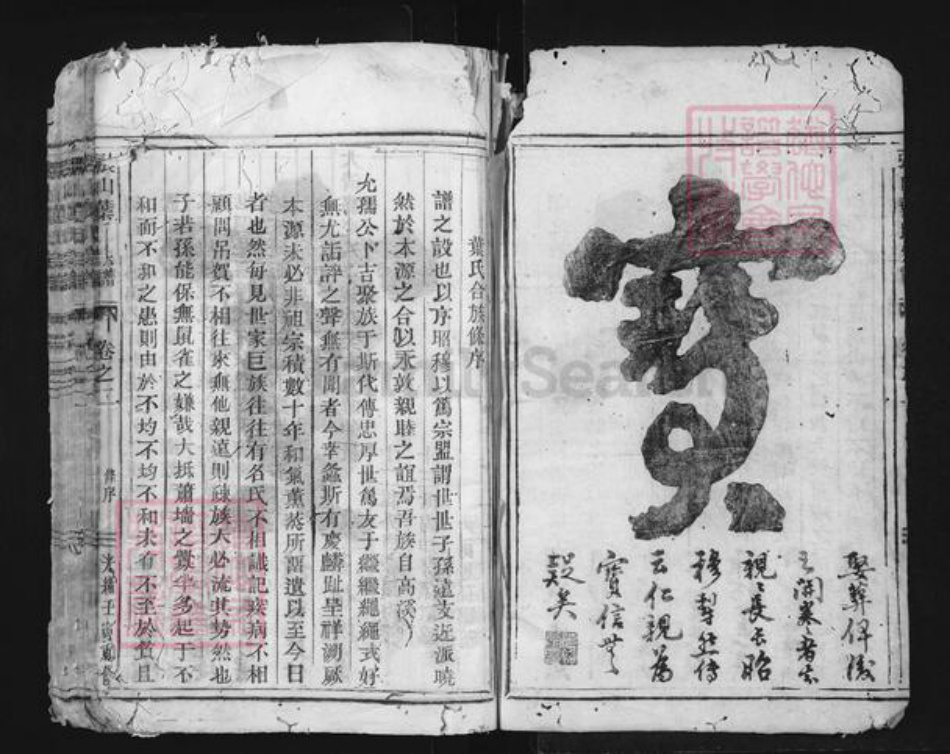 寳
娶葬俾後
之開卷者
親〻長長昭
穆犁然傳
云仁親為
寶信無
疑矣
葉氏合族修序
譜之設也以序昭穆以篤宗盟謂世世子孫遠支近派曉
然於本源之合以永敦親睦之誼焉吾族自高溪
允孺公卜吉聚族于斯代傳忠厚世篤友于繼繼繩繩式好
無尤詬誶之聲無有聞者今幸螽斯有慶麟趾呈祥溯厥
本源未必非祖宗積數十年和氣薰蒸所謳遺以至今日
者也然每見世家巨族往往有名氏不相識記疾病不相
顧問吊賀不相往來無他親遠則疎族大必流其勢然也
子若孫能保無鼠雀之嫌哉大抵蕭墻之釁半多起于不
和而不和之患則由於不均不均不和未有不至於貧且
山葉氏譜
卷之一
修序
光緒壬寅